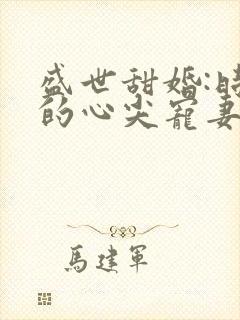 盛世甜婚:
的心尖宠妻
馬建軍